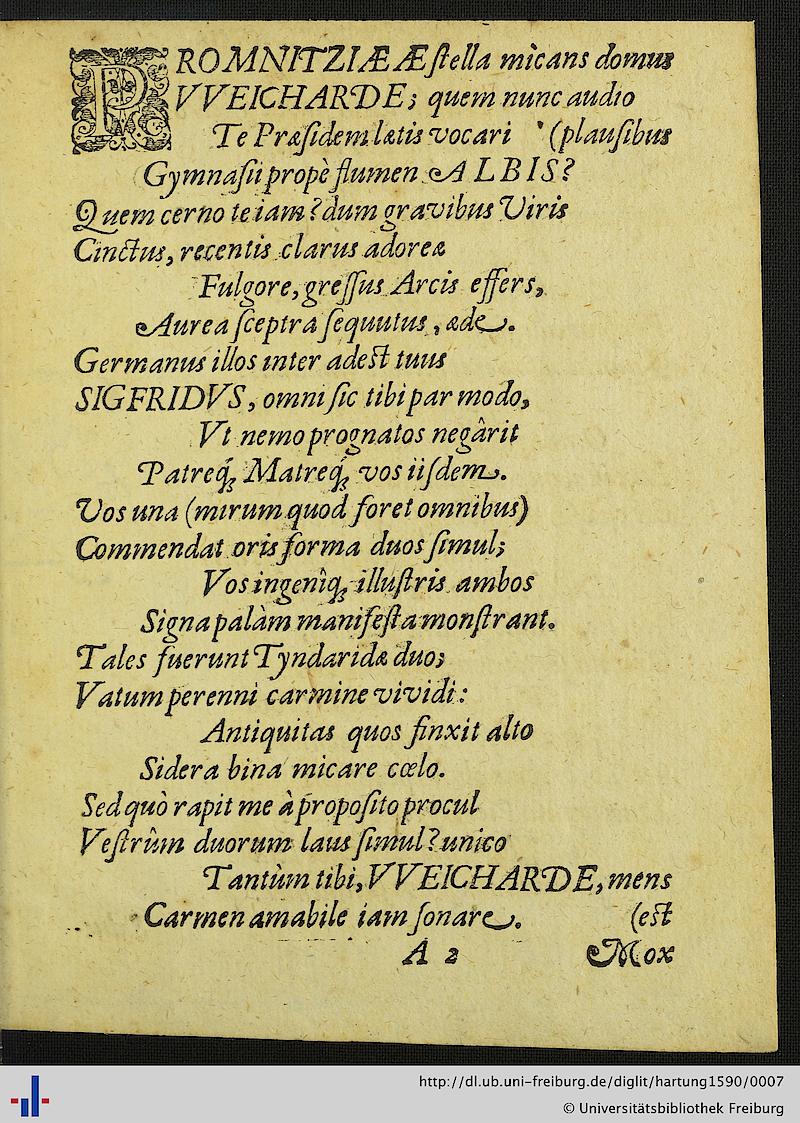 PROMNITZIÆ Æ ſtella mìcans domus
VVEICHARDE; quem nunc audio
Te Præſidem lætis vocari (plauſibus
Gymnaſii propè flumen ALBIS?
Quem cerno te iam? dum gravibus Viris
Cinctus, recentis clarus adoreæ
Fulgore, greſſus Arcis effers,
Aurea ſceptra ſequutus, æde.
Germanus illos inter adest tuus
SIGFRIDVS, omni ſic tibi par modo,
Vt nemo prognatos negârit
Patreq́; Matreq́; vos iiſdem.
Vos una (mirum quod foret omnibus)
Commendat oris forma duos ſimul;
Vos ingenîq; illuſtris ambos
Signa palàm manifeſta monſtrant.
Tales fuerunt Tyndaridæ duo;
Vatum perenni carmine vividi:
Antiquitas quos finxit alto
Sidera bina micare cœlo.
Sed quò rapit me à propoſito procul
Veſtrûm duorum laus ſimul? unico
Tantùm tibi, VVEICHARDE, mens
Carmen amabile iam ſonare. (est
A 2 Mox
http://dl.ub.uni-freiburg.de/diglit/hartung1590/0007
© Universitätsbibliothek Freiburg